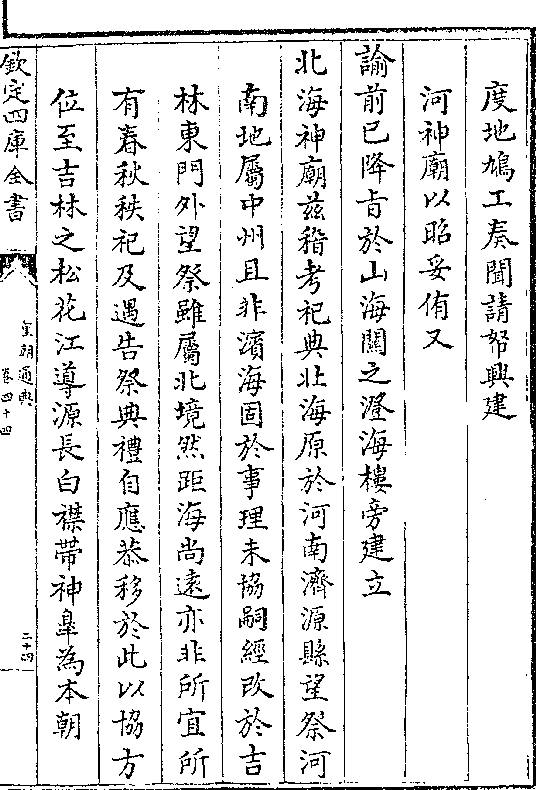 度地鳩工奏聞請帑興建
河神廟以昭妥侑又
諭前已降旨於山海關之澄海樓旁建立
北海神廟茲稽考祀典北海原於河南濟源縣望祭河
南地屬中州且非濱海固於事理未協嗣經改於吉
林東門外望祭雖屬北境然距海尚遠亦非所宜所
有春秋秩祀及遇告祭典禮自應恭移於此以協方
位至吉林之松花江導源長白襟帶神臯為本朝
欽定四庫全書
皇朝通典
卷四十四
二十四